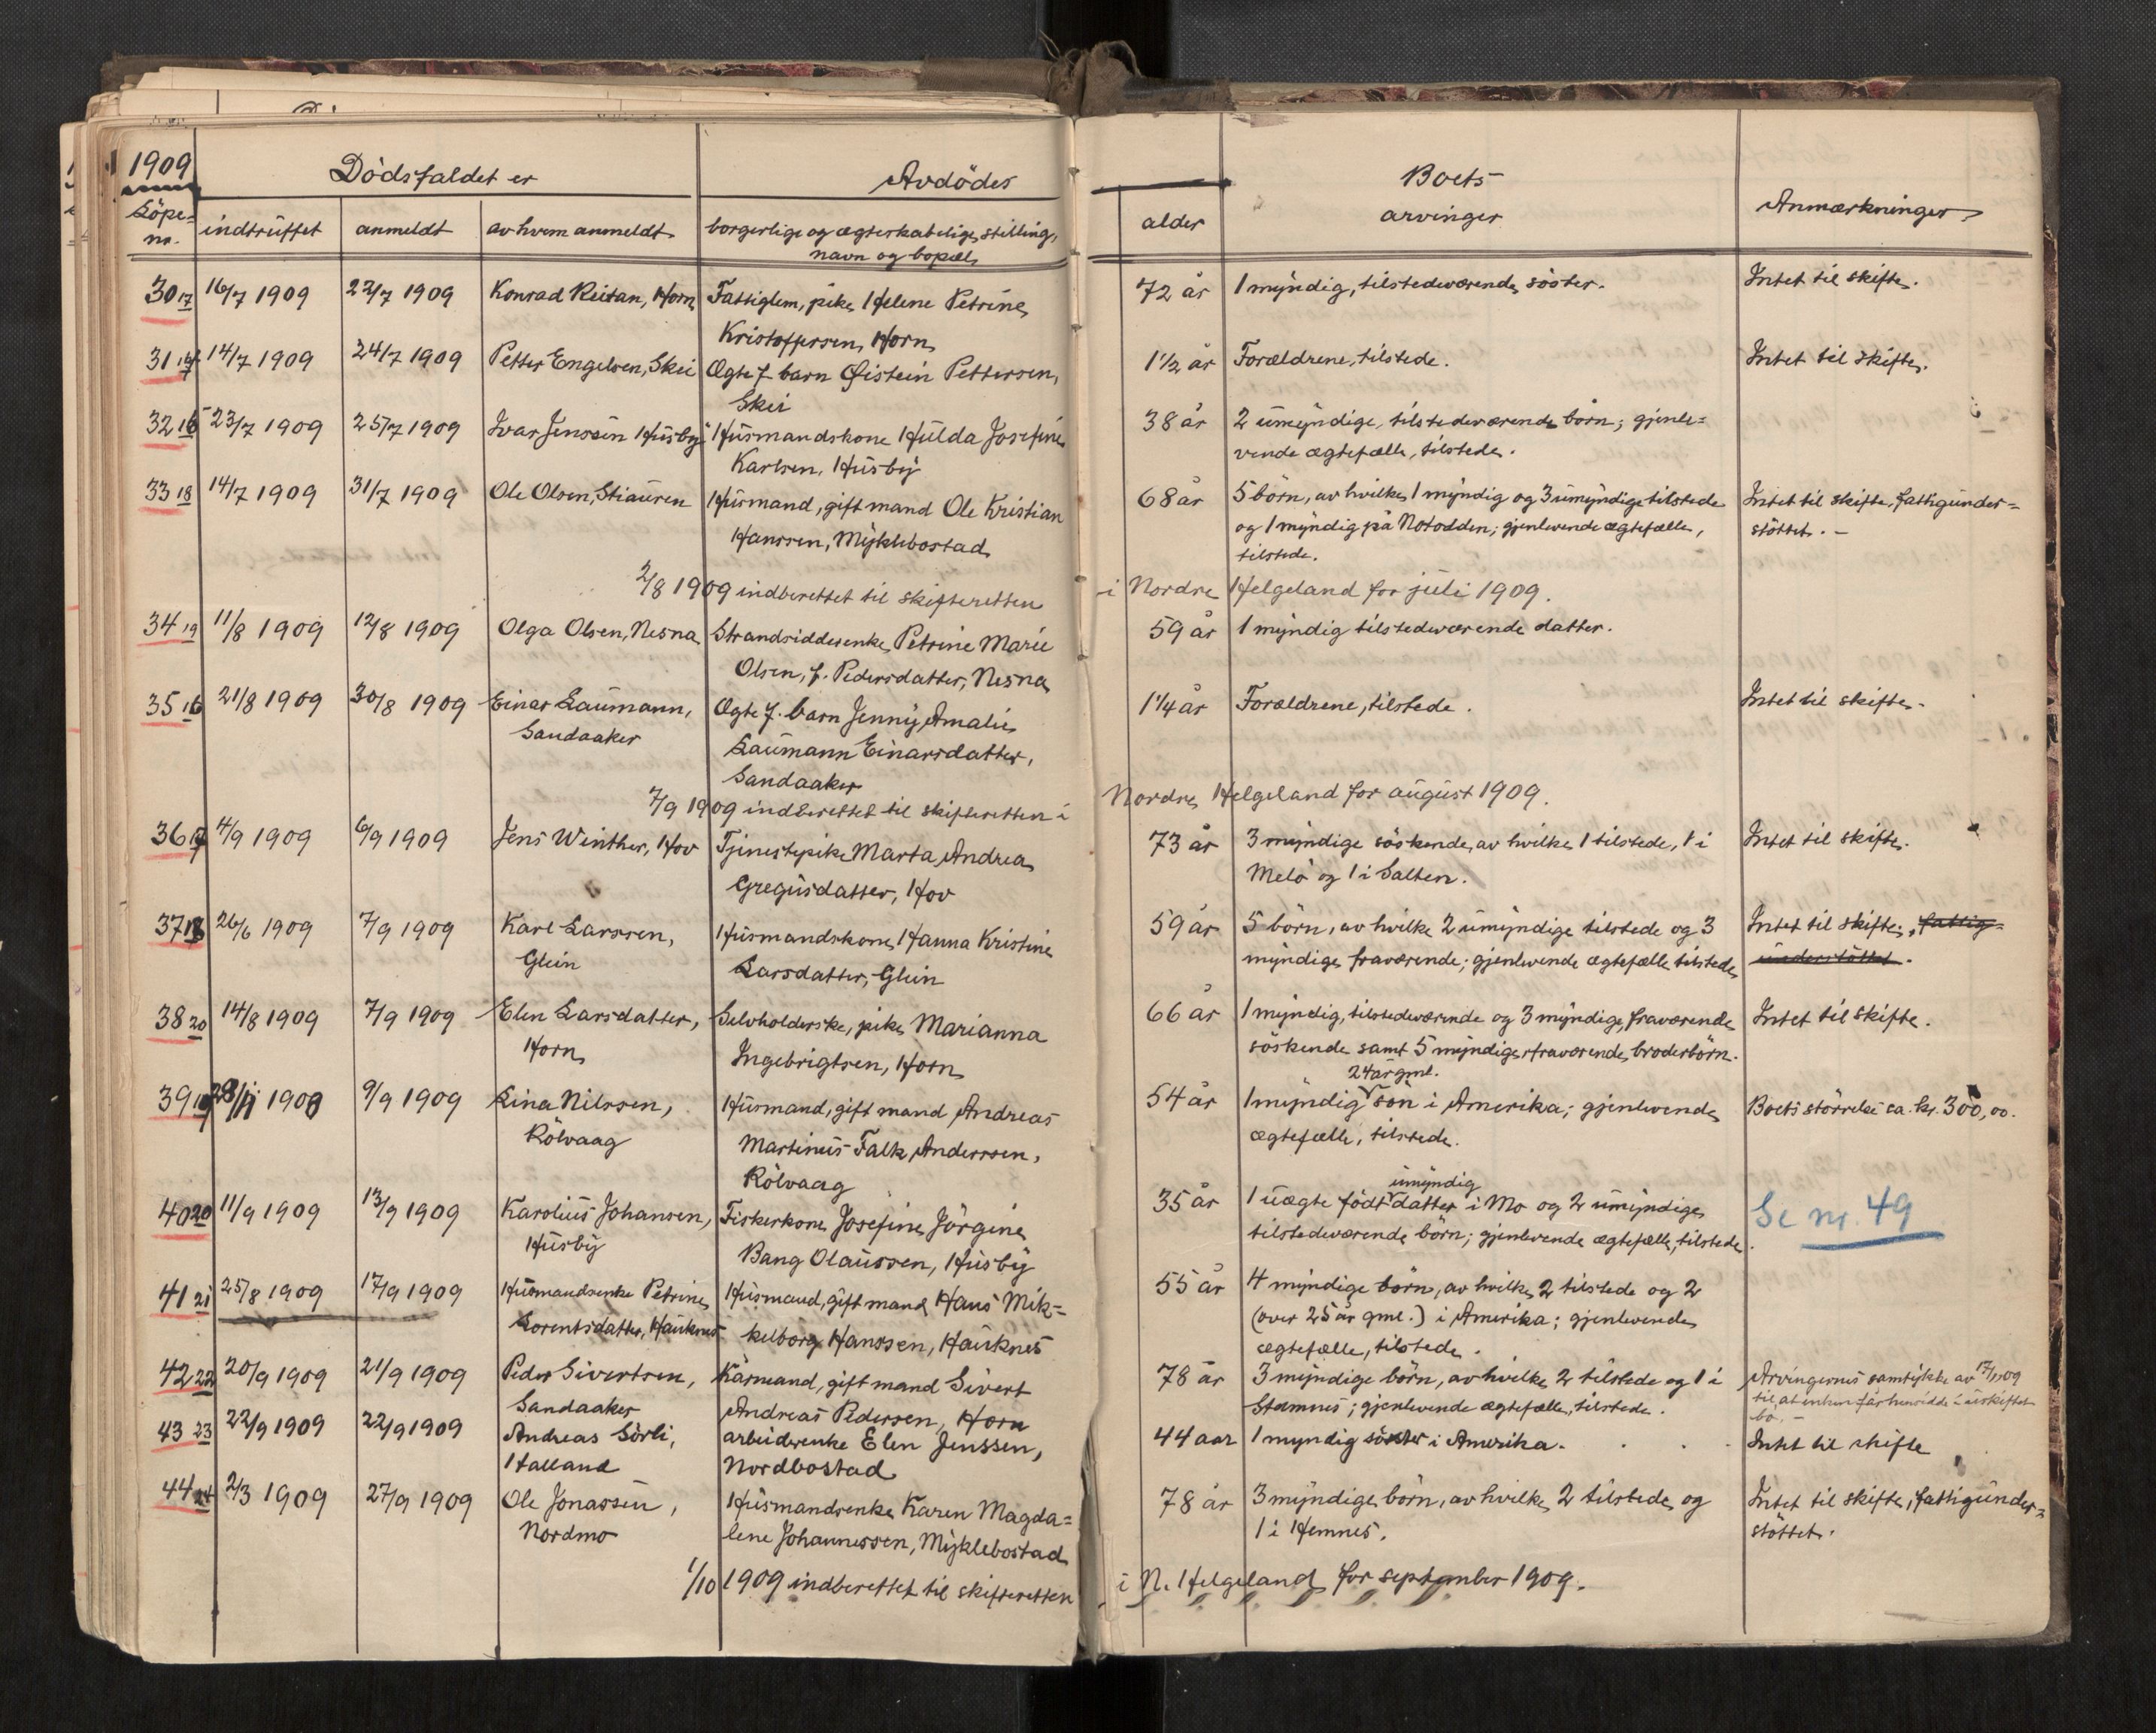 1909
Dödsfaldet er
Avdödes
Boets
Löpe-
no.
indtruffet
anmeldt
av hvem anmeldt
borgerlige og ægteskabelige stilling,
navn og bopæl
alder
arvinger
Anmærkninger
30 17 16/7 1909 22/7 1909 Konrad Reitan, Horn Fattiglem, pike Helene Petrine 72 år 1 myndig, tilstedeværende söster. Intet til skifte.
Kristoffersen, Horn
31 14/7 1909 24/7 1909 Petter Engelsen, Skei Ægte f. barn Øistein Pettersen, 1 1/2 år Forældrene, tilstede. Intet til skifte.
Skei
32 16 23/7 1909 25/7 1909 Ivar Jenssen Husby Husmandskone Hulda Josefine 38 år 2 umyndige, tilstedeværende börn; gjenle-
Karlsen, Husby vende ægtefælle, tilstede.
33 18 14/7 1909 31/7 1909 Ole Olsen, Stiauren Husmand, gift mand Ole Kristian 68 år 5 börn, av hvilke 1 myndig og 3 umyndige tilstede Intet til skifte, fattigunder-
Hanssen, Myklebostad og 1 myndig på Notodden; gjenlevende ægtefælle, støttet. -
tilstede.
2/8 1909 indberettet til skifteretten i Nordre Helgeland for juli 1909.
34 19 11/8 1909 12/8 1909 Olga Olsen, Nesna Strandsidderenke Petrine Marie 59 år 1 myndig tilstedeværende datter.
Olsen, f. Pedersdatter, Nesna
35 16 21/8 1909 30/8 1909 Einar Laumann, Ægte f. barn Jenny Amalie 1 1/4 år Forældrene, tilstede. Intet til skifte.
Sandaaker Laumann Einarsdatter,
Sandaaker
7/9 1909 indberettet til skifteretten i Nordre Helgeland for august 1909.
36 17 4/9 1909 6/9 1909 Jens Winther, Hov Tjenestepike Marta Andrea 73 år 3 myndige söskende, av hvilke 1 tilstede, 1 i Intet til skifte.
Gregusdatter, Hov Melö og 1 i Salten.
37 18 26/6 1909 7/9 1909 Karl Larssen, Husmandskone Hanna Kristine 59 år 5 börn, av hvilke 2 umyndige tilstede og 3 Intet til skifte, fattig-
Glein Larsdatter, Glein myndige fraværende; gjenlevende ægtefælle tilstede understöttet.
38 20 14/8 1909 7/9 1909 Elen Larsdatter, Selvholderske, pike Marianna 66 år 1 myndig, tilstedeværende og 3 myndige, fraværende Intet til skifte.
Horn Ingebrigtsen, Horn söskende samt 5 myndige, fraværende broderbörn.
24 år gml.
39 19 9/9 1909 Lina Nilssen, Husmand, gift mand Andreas 54 år 1 myndig sön i Amerika; gjenlevende Boets störrelse ca. kr. 300,00.
Rölvaag Martinus Falk Anderssen, ægtefælle, tilstede.
Rölvaag
umyndig
40 20 11/9 1909 13/9 1909 Karolius Johansen, Fiskerkone Josefine Jörgine 35 år 1 uægte födt datter i Mo og 2 umyndige Se nr. 49
Husby Bang Olaussen, Husby tilstedeværende börn; gjenlevende ægtefælle, tilstede.
41 21 25/8 1909 17/9 1909 Husmandsenke Petrine Husmand, gift mand Hans Mik- 55 år 4 myndige börn, av hvilke 2 tilstede og 2
Lorentsdatter, Hauknes kelborg Hanssen, Hauknes (over 25 år gml.) i Amerika; gjenlevende
ægtefælle, tilstede.
42 22 20/9 1909 21/9 1909 Peder Sivertsen, Kårmand, gift mand Sivert 78 år 3 myndige börn, av hvilke 2 tilstede og 1 i Arvingernes samtykke av 09
Sandaaker Andreas Pedersen, Horn Stamnes; gjenlevende ægtefælle, tilstede. til, at enken får hensidde i uskiftet
bo. -
43 23 22/9 1909 22/9 1909 Andreas Sörli, arbeiderenke Elen Jenssen, 44 aar 1 myndig söster i Amerika. Intet til skifte
Halland Nordbostad
44 24 2/3 1909 27/9 1909 Ole Jonassen, Husmandsenke Karen Magda- 78 år 3 myndige börn, av hvilke 2 tilstede og Intet til skifte, fattigunder-
Nordmo lene Johannessen, Myklebostad 1 i Hemnes. støttet.
1/10 1909 indberettet til skifteretten i N. Helgeland for september 1909.